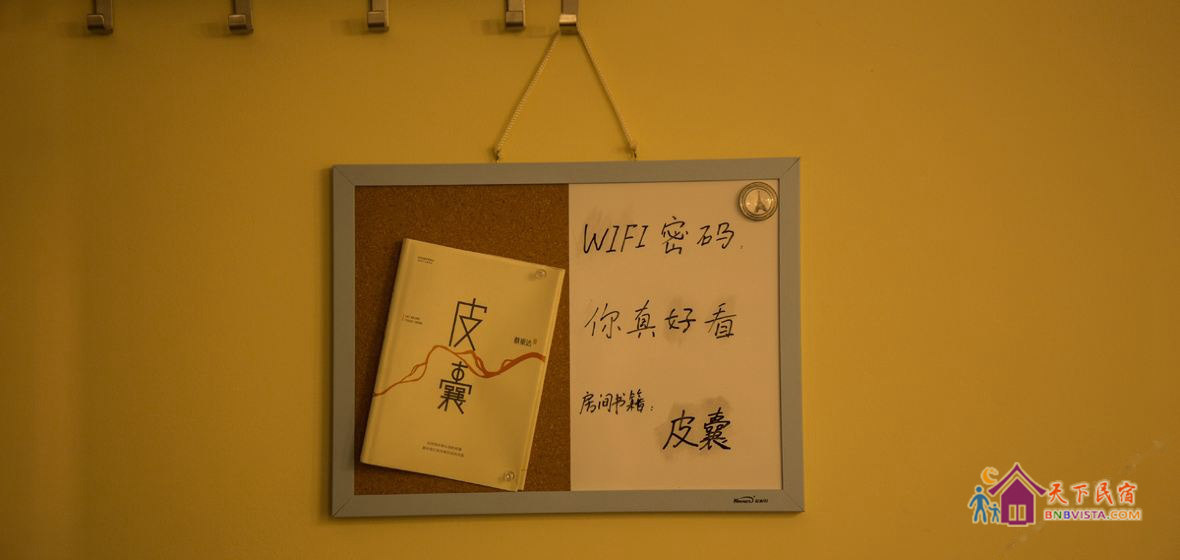 WIFI 密码
你真好看
房间书籍:
皮囊
皮囊
蔡崇达
天下民宿
BNBVISTA.COM